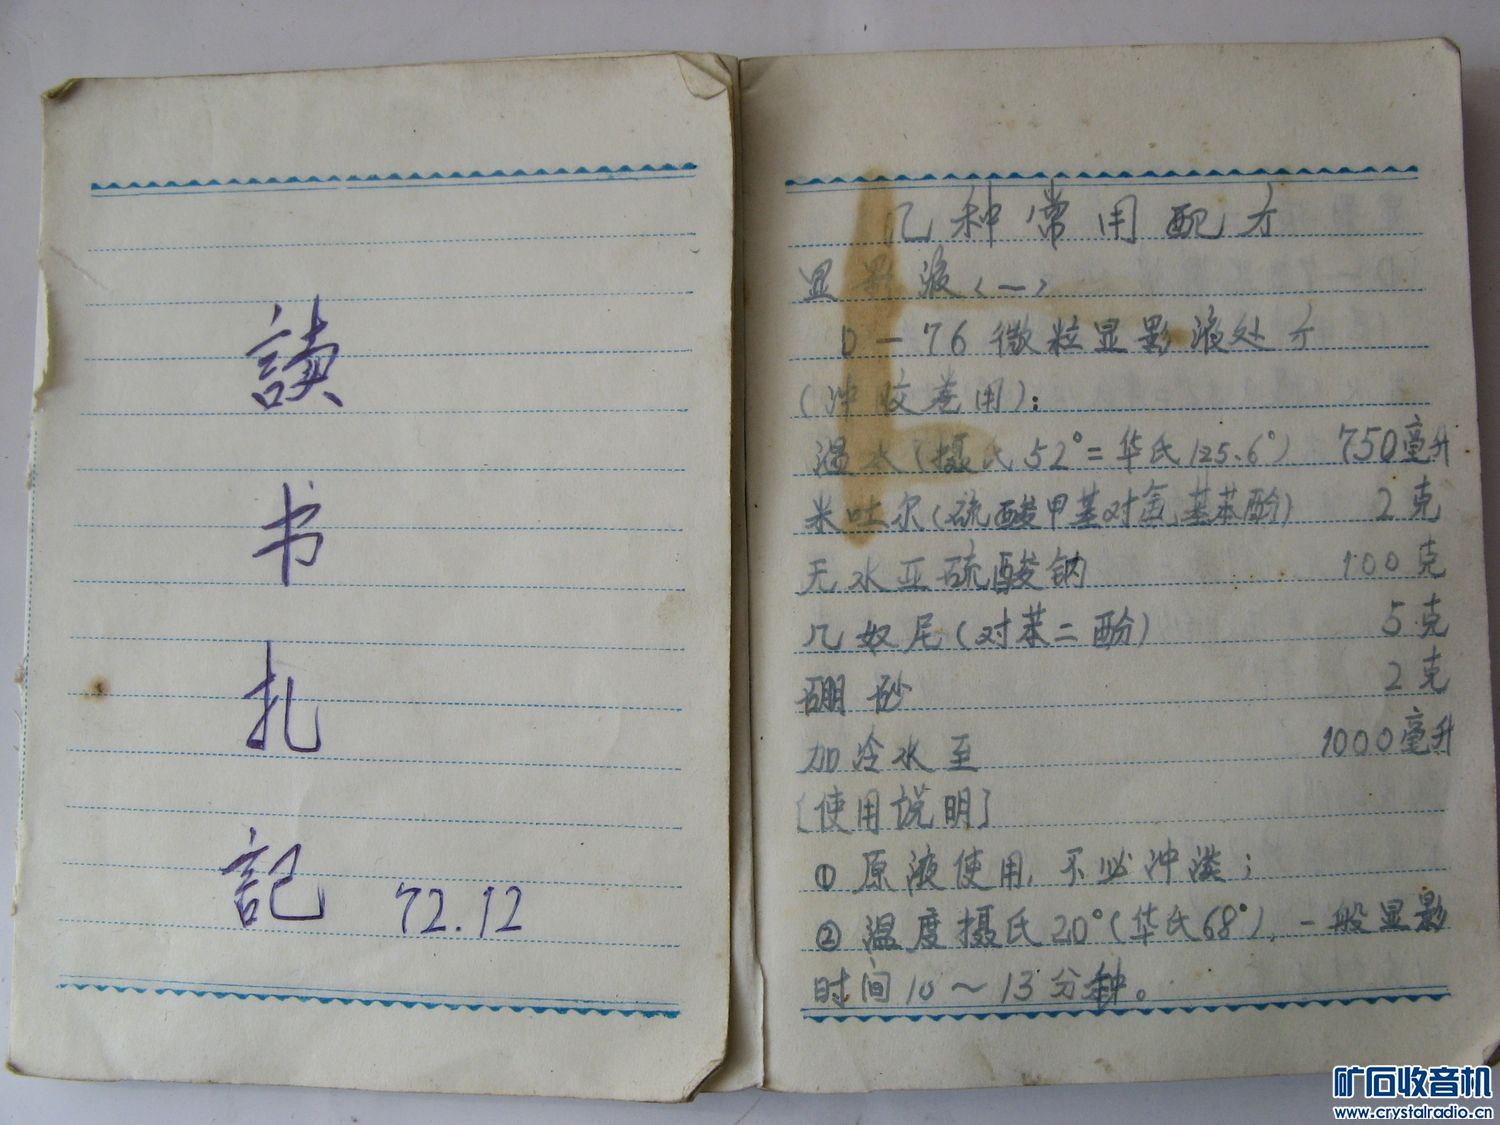 讀
书
扎
記 72.12
几种常用配方
显影液(一)
D-76微粒显影液处方
(冲胶卷用):
温水(摄氏52°=华氏125.6°) 750毫升
米吐尔(硫酸甲基对氨基苯酚) 2克
无水亚硫酸钠 100克
几奴尼(对苯二酚) 5克
硼砂 2克
加冷水至 1000毫升
[使用说明]
①原液使用,不必冲淡;
②温度摄氏20°(华氏68°),一般显影
时间10~13分钟。
矿石收音机
www.crystalradio.cn